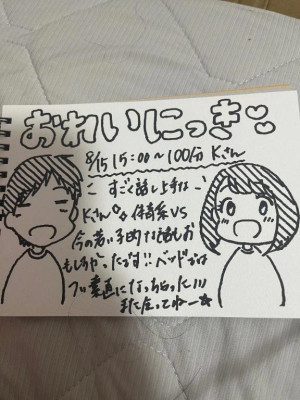 おれいにっき♡
8/15 15:00〜100分 Kさん
すごく話し上手な
Kさん 体育系VS
今の若い子的な話もお
もしろかったです!!ベッドでは
つい素直になっちゃった///
また会ってねー★